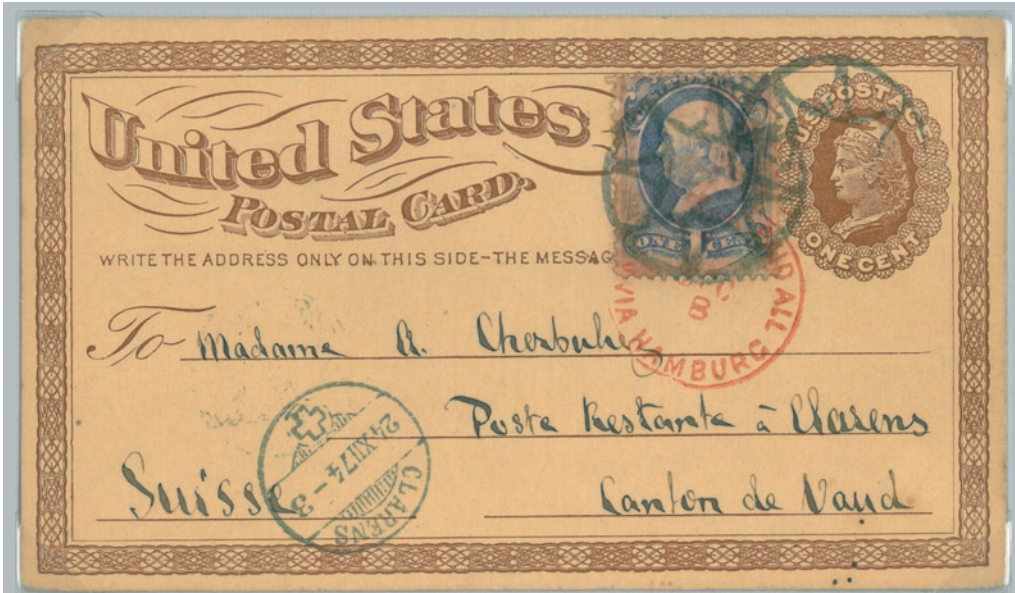 United States
POSTAL CARD.
U.S. POSTAGE
ONE CENT
ONE CENT
WRITE THE ADDRESS ONLY ON THIS SIDE-THE MESSAG
VIA HAMBURG
ALL
To Madame A. Cherbuliez
Poste Restante à Clarens
Suisse
Canton de Vaud
24 XII 74-3
CLARENS